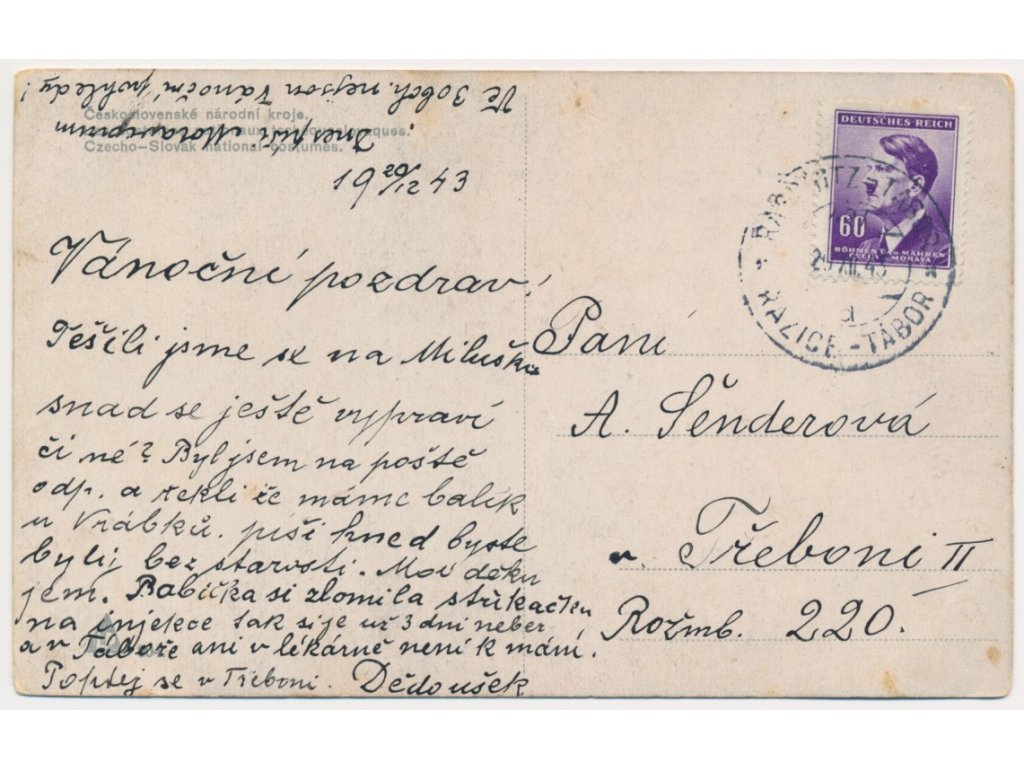 Ve 3 obch. nejsou Vánoční pohledy!
Československé národní kroje.
Czecho-Slovak national costumes.
19 20/12 43
Vánoční pozdrav!
Těšili jsme se na Milušku
snad se ještě vypraví
či né? Byl jsem na poště
odp. a řekli že máme balík
u Vrábků. píši hned byste
byli bez starosti. Moc děku
jem. Babička si zlomila stříkačku
na injekce tak si je už 3 dni neber
a v Táboře ani v lékárně není k mání.
Poptej se v Třeboni. Dědoušek
DEUTSCHES REICH
60
BÖHMEN UND MÄHREN
ČECHY A MORAVA
RAŽICE-TÁBOR
Paní
A. Šenderová
v Třeboni II
Rožmb. 220.